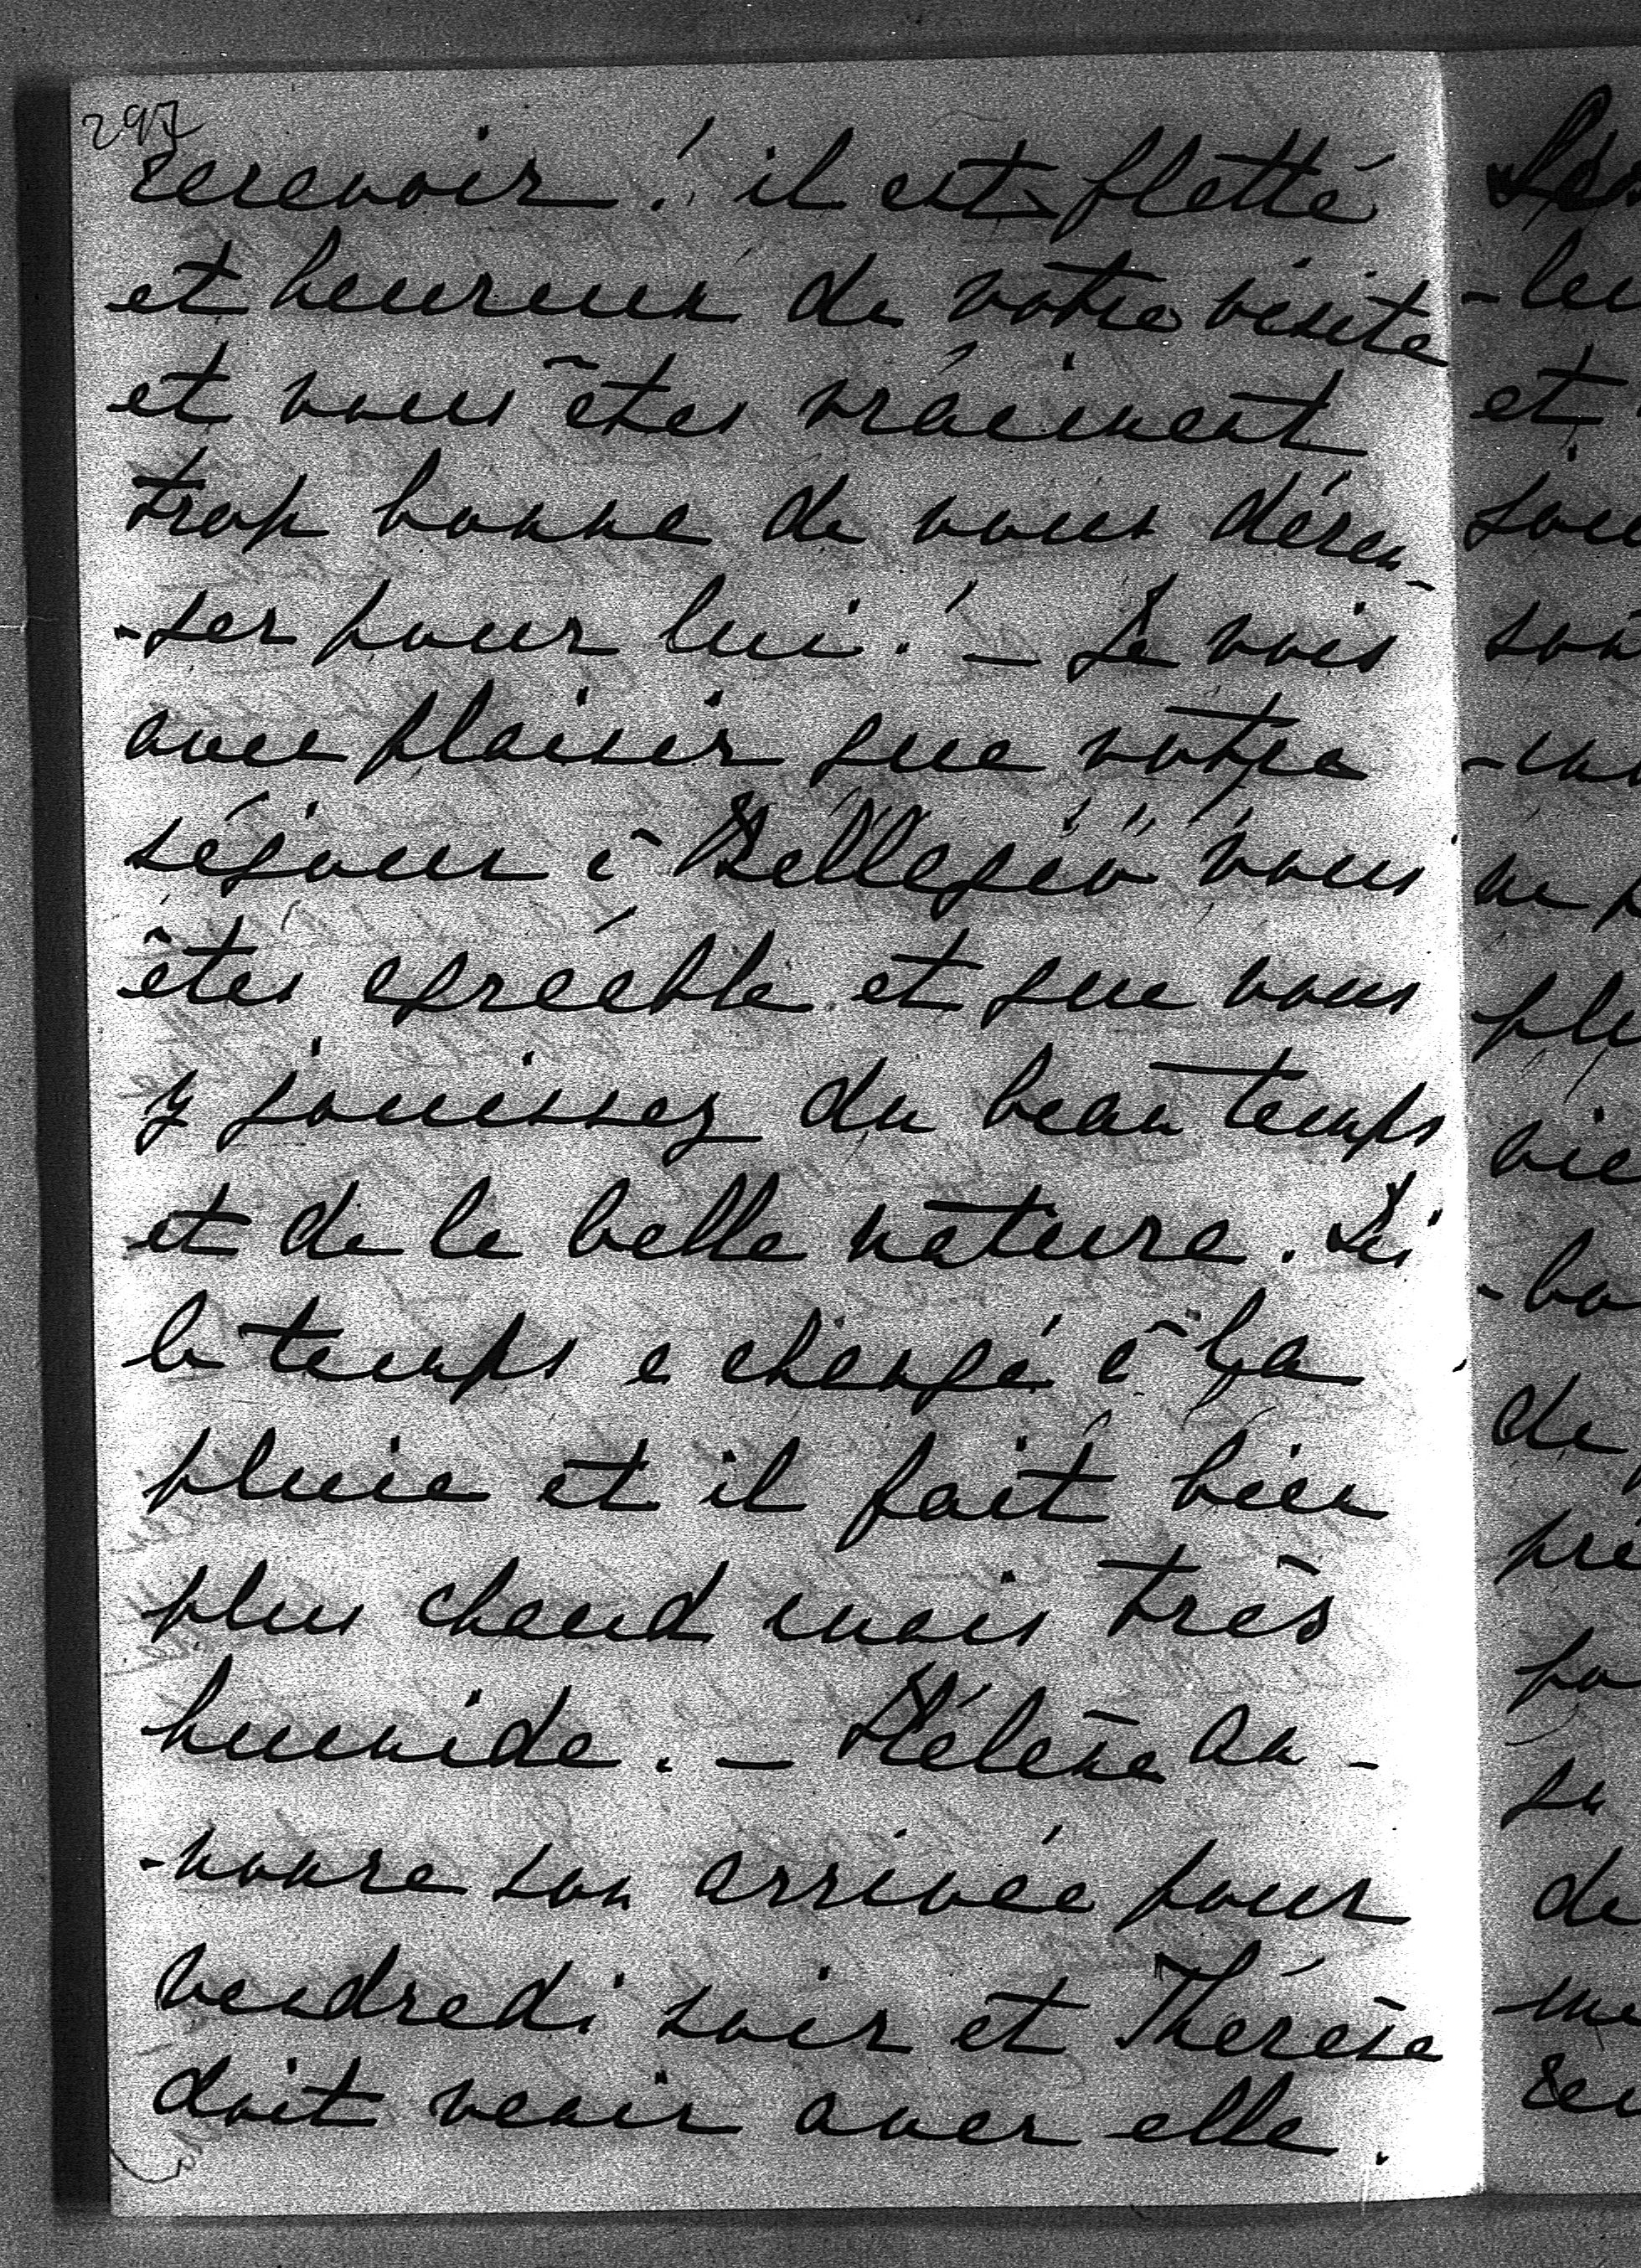 297
recevoir! il est flatté
et heureux de votre visite
et vous êtes vraiment
trop bonne de vous déran-
-ger pour lui! – Je vois
avec plaisir que votre
séjour à Bellagio vous
êtes agréable et que vous
y jouissez du beau temps
et de la belle nature. Ici
le temps a changé à la
pluie et il fait bien
plus chaud mais très
humide. – Hélène an-
-nonce son arrivée pour
vendredi soir et Thérèse
doit venir avec elle.